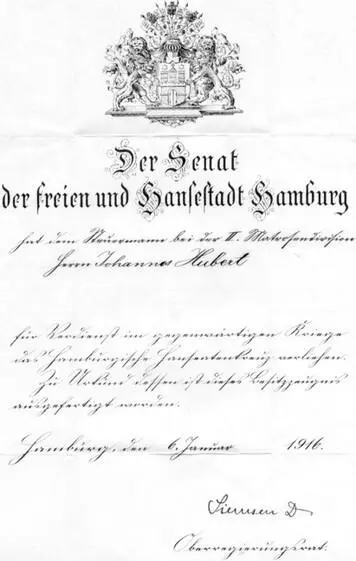 Der Senat
der freien und Hansestadt Hamburg
hat dem Steuermann bei der II. Matrosendivision
Herrn Johannes Hubert
für Verdienst im gegenwärtigen Kriege
das Hamburgische Hanseatenkreuz verliehen.
Zu Urkund dessen ist dieses Besitzzeugnis
ausgefertigt worden.
Hamburg, den 6. Januar 1916.
Siemsen D
Oberregierungsrat.